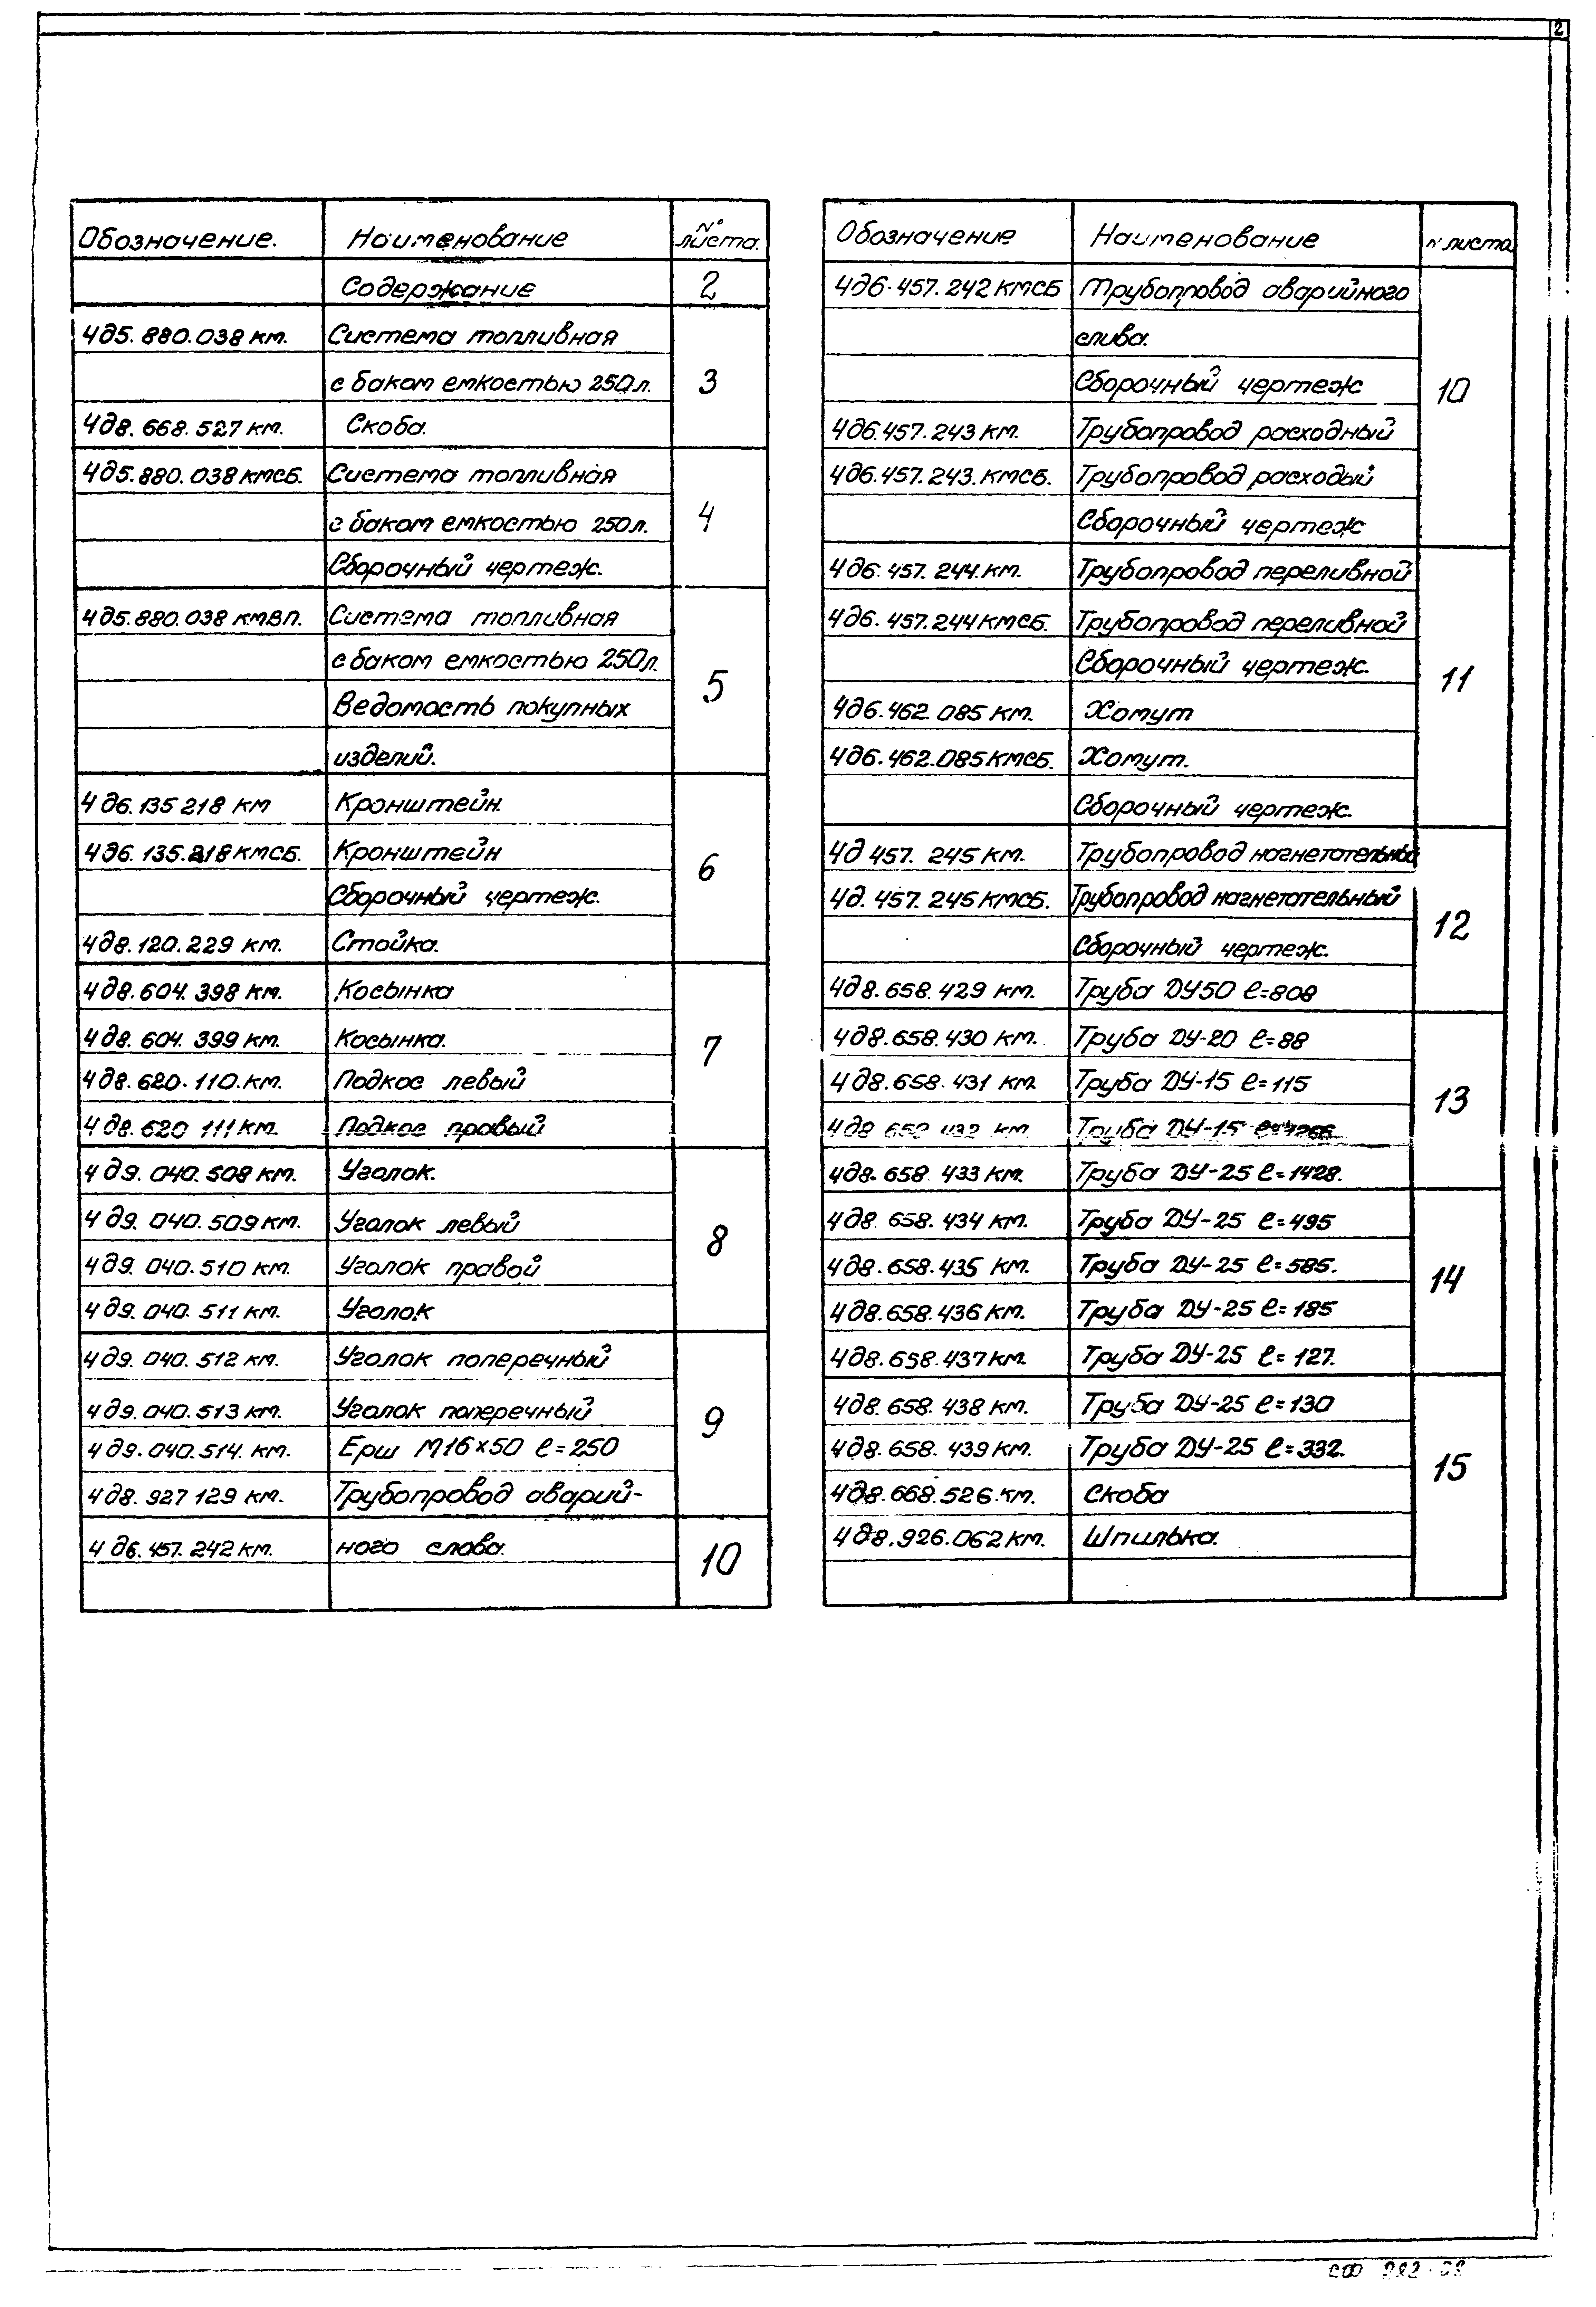 2
Обозначение. Наименование N° листа.
Содержание 2
4д5.880.038 км. Система топливная
с баком емкостью 250л. 3
4д8.668.527 км. Скоба.
4д5.880.038 кмсб. Система топливная
с баком емкостью 250л. 4
Сборочный чертеж.
4д5.880.038 кмвп. Система топливная
с баком емкостью 250л.
Ведомость покупных 5
изделий.
4д6.135 218 км Кронштейн.
4д6.135.218 кмсб. Кронштейн 6
Сборочный чертеж.
4д8.120.229 км. Стойка.
4д8.604.398 км. Косынка
4д8.604.399 км. Косынка. 7
4д8.620.110.км. Подкос левый
4д8.620 111 км. Подкос правый
4д9.040.508 км. Уголок.
4д9.040.509 км. Уголок левый 8
4д9.040.510 км. Уголок правой
4д9.040.511 км. Уголок
4д9.040.512 км. Уголок поперечный
4д9.040.513 км. Уголок поперечный 9
4д9.040.514. км. Ерш М16×50 ℓ=250
4д8.927 129 км. Трубопровод аварий-
4д6.457.242 км. ного слава. 10
Обозначение Наименование N° листа
4д6.457.242 кмсб Трубопровод аварийного
слива.
Сборочный чертеж 10
4д6.457.243 км. Трубопровод расходный
4д6.457.243.кмсб. Трубопровод расходый
Сборочный чертеж
4д6.457.244.км. Трубопровод переливной
4д6.457.244 кмсб. Трубопровод переливной
Сборочный чертеж. 11
4д6.462.085 км. Хомут
4д6.462.085 кмсб. Хомут.
Сборочный чертеж.
4д 457.245 км. Трубопровод нагнетательный
4д.457.245 кмсб. Трубопровод нагнетательный 12
Сборочный чертеж.
4д8.658.429 км. Труба ДУ50 ℓ=808
4д8.658.430 км. Труба ДУ-20 ℓ=88
4д8.658.431 км Труба ДУ-15 ℓ=115 13
4д8 658 432 км Труба ДУ-15
4д8.658.433 км. Труба ДУ-25 ℓ=1428.
4д8.658.434 км. Труба ДУ-25 ℓ=495
4д8.658.435 км. Труба ДУ-25 ℓ=585. 14
4д8.658.436 км. Труба ДУ-25 ℓ=185
4д8.658.437 км. Труба ДУ-25 ℓ=127.
4д8.658.438 км. Труба ДУ-25 ℓ=130
4д8.658.439 км. Труба ДУ-25 ℓ=332. 15
4д8.668.526.км. Скоба
4д8.926.062 км. Шпилька.